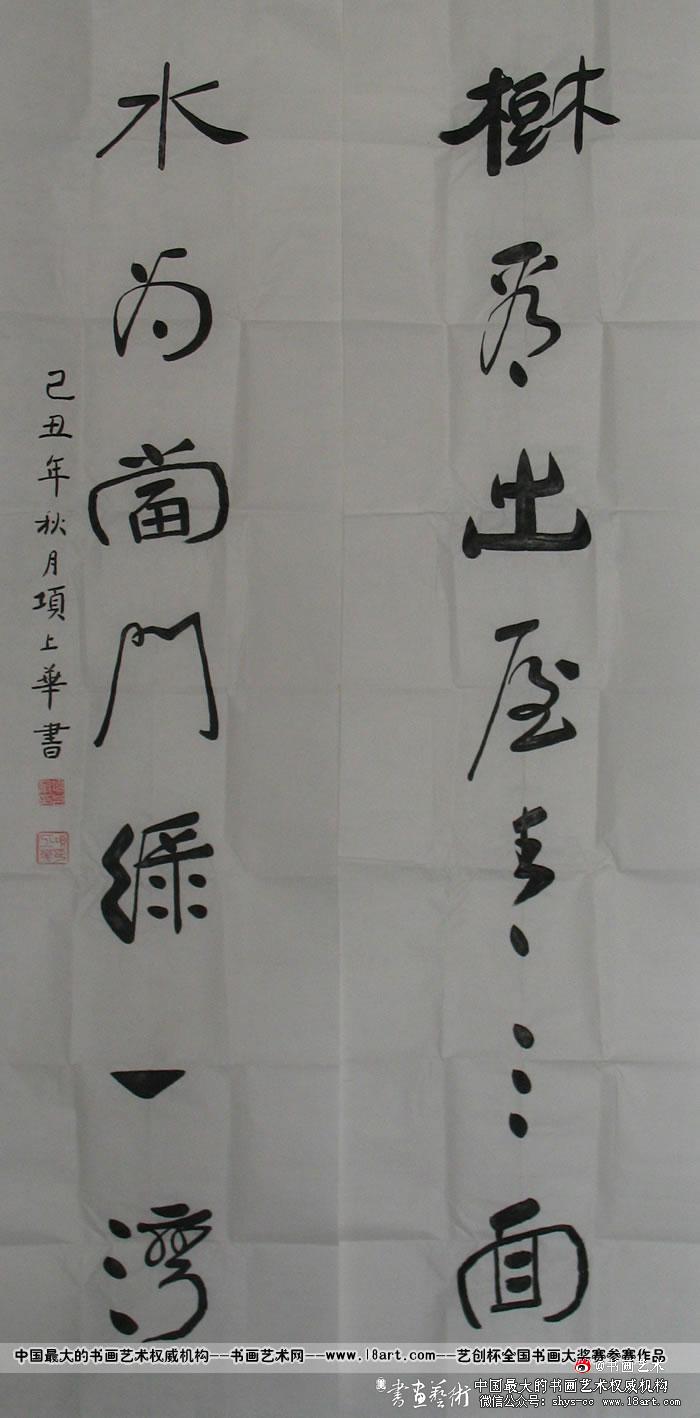 樹出屋青三面
水为當門綠一湾
己丑年秋月項上華書
中国最大的书画艺术权威机构--书画艺术网--www.18art.com--艺创杯全国书画大奖赛参赛作品
@书画艺术
書畫藝術
中国最大的书画艺术权威机构
微信公众号: shys-cc www.18art.com